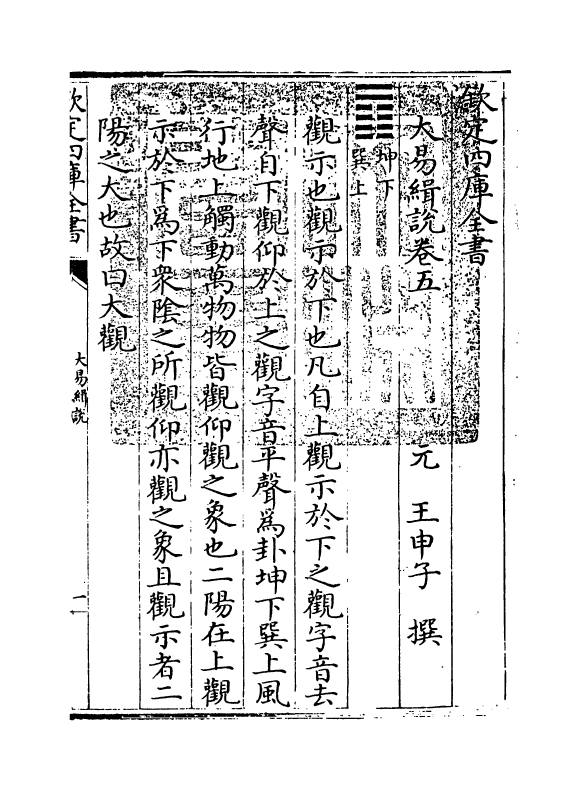 欽定四庫全書
大易緝說卷五
元 王申子 撰
䷓坤下
巽上
觀示也觀示於下也凡自上觀示於下之觀字音去
聲自下觀仰於上之觀字音平聲為卦坤下巽上風
行地上觸動萬物物皆觀仰觀之象也二陽在上觀
示於下為下眾陰之所觀仰亦觀之象且觀示者二
陽之大也故曰大觀
欽定四庫全書
大易緝說